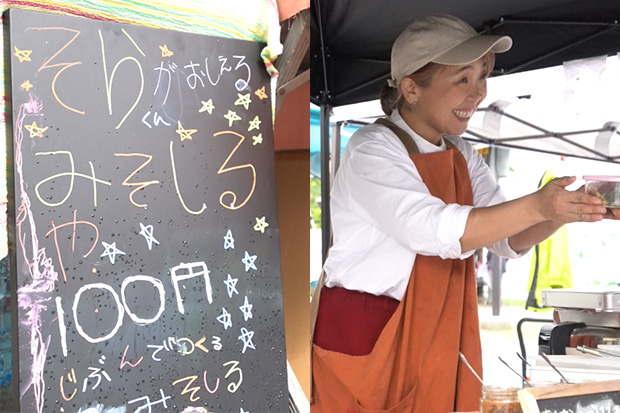 そらがおしえる
くん
みそしる
や
100円
じぶんでつくる
みそしる